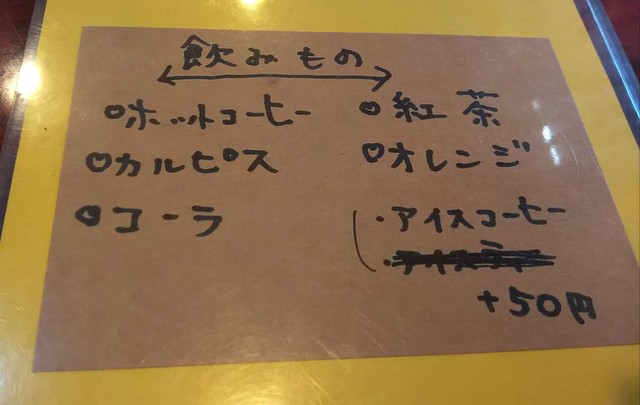 飲みもの
ホットコーヒー
カルピス
コーラ
紅茶
オレンジ
・アイスコーヒー
+50円